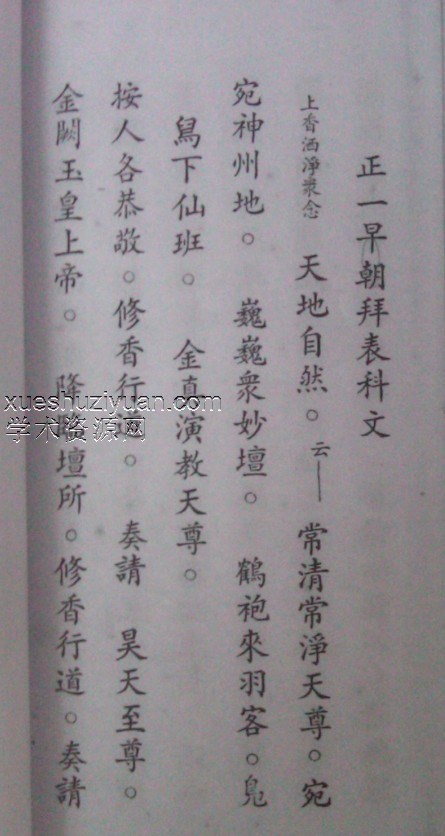 正一早朝拜表科文
上香洒淨衆念　天地自然。云——　常清常淨天尊。宛
宛神州地。　巍巍衆妙壇。　鶴袍來羽客。凫
舄下仙班。　金真演教天尊。
按人各恭敬。修香行道。　奏請　昊天至尊。
金闕玉皇上帝。　降臨壇所。修香行道。奏請
xueshuziyuan.com
学术资源网